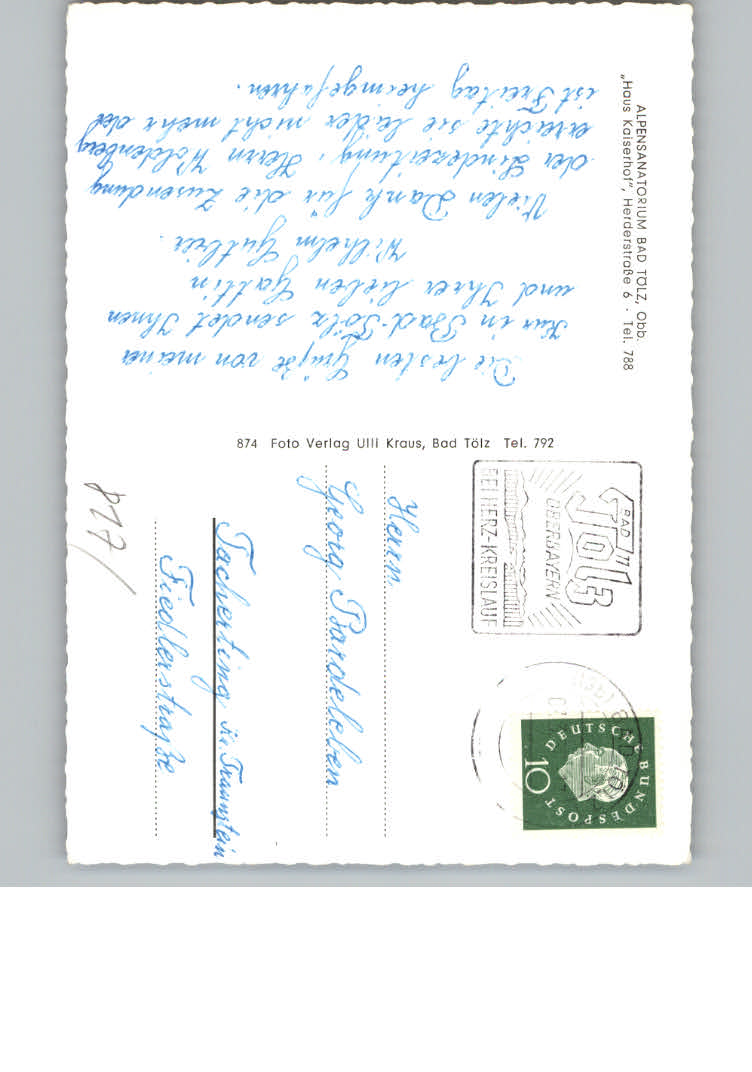 ALPENSANATORIUM BAD TÖLZ, Obb.
„Haus Kaiserhof", Herderstraße 6 · Tel. 788
Die besten Grüße von meiner
Kur in Bad-Tölz sendet Ihnen
und Ihrer lieben Gattin
Wilhelm
Vielen Dank für die Zusendung
der Linderzeitung. Herrn Woldenberg
erreichte sie leider nicht mehr der
ist Freitag heimgefahren.
874 Foto Verlag Ulli Kraus, Bad Tölz Tel. 792
BAD
Tölz
OBERBAYERN
BEI HERZ-KREISLAUF
DEUTSCHE BUNDESPOST
10
Herrn
Georg Bardeleben
Tacherting Kr. Traunstein
Fiedlerstraße
877/